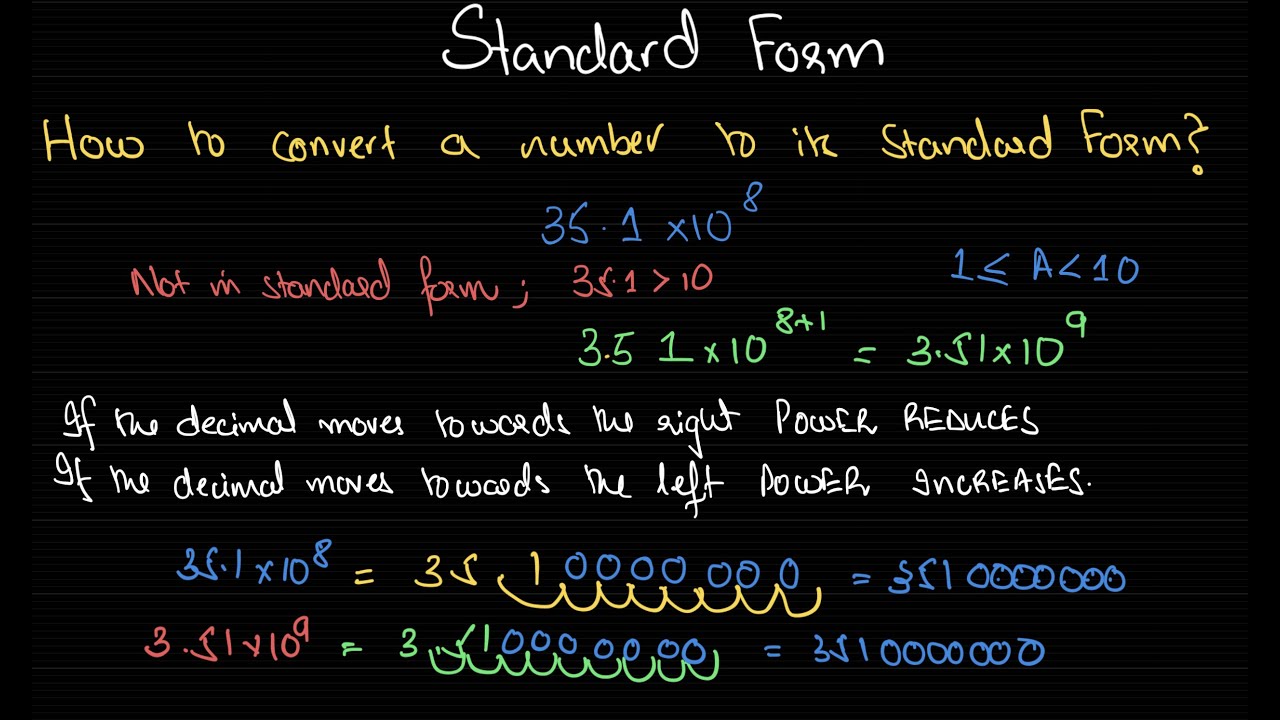 Standard Form
How to convert a number to its Standard Form?
35.1 ×10^8
Not in standard form; 35.1 > 10
1 ≤ A < 10
3.5 1 ×10^8+1 = 3.51×10^9
If the decimal moves towards the right POWER REDUCES
If the decimal moves towards the left POWER INCREASES.
35.1×10^8 = 35 1 0000 000 = 3510000000
3.51×10^9 = 3 510000000 = 3510000000